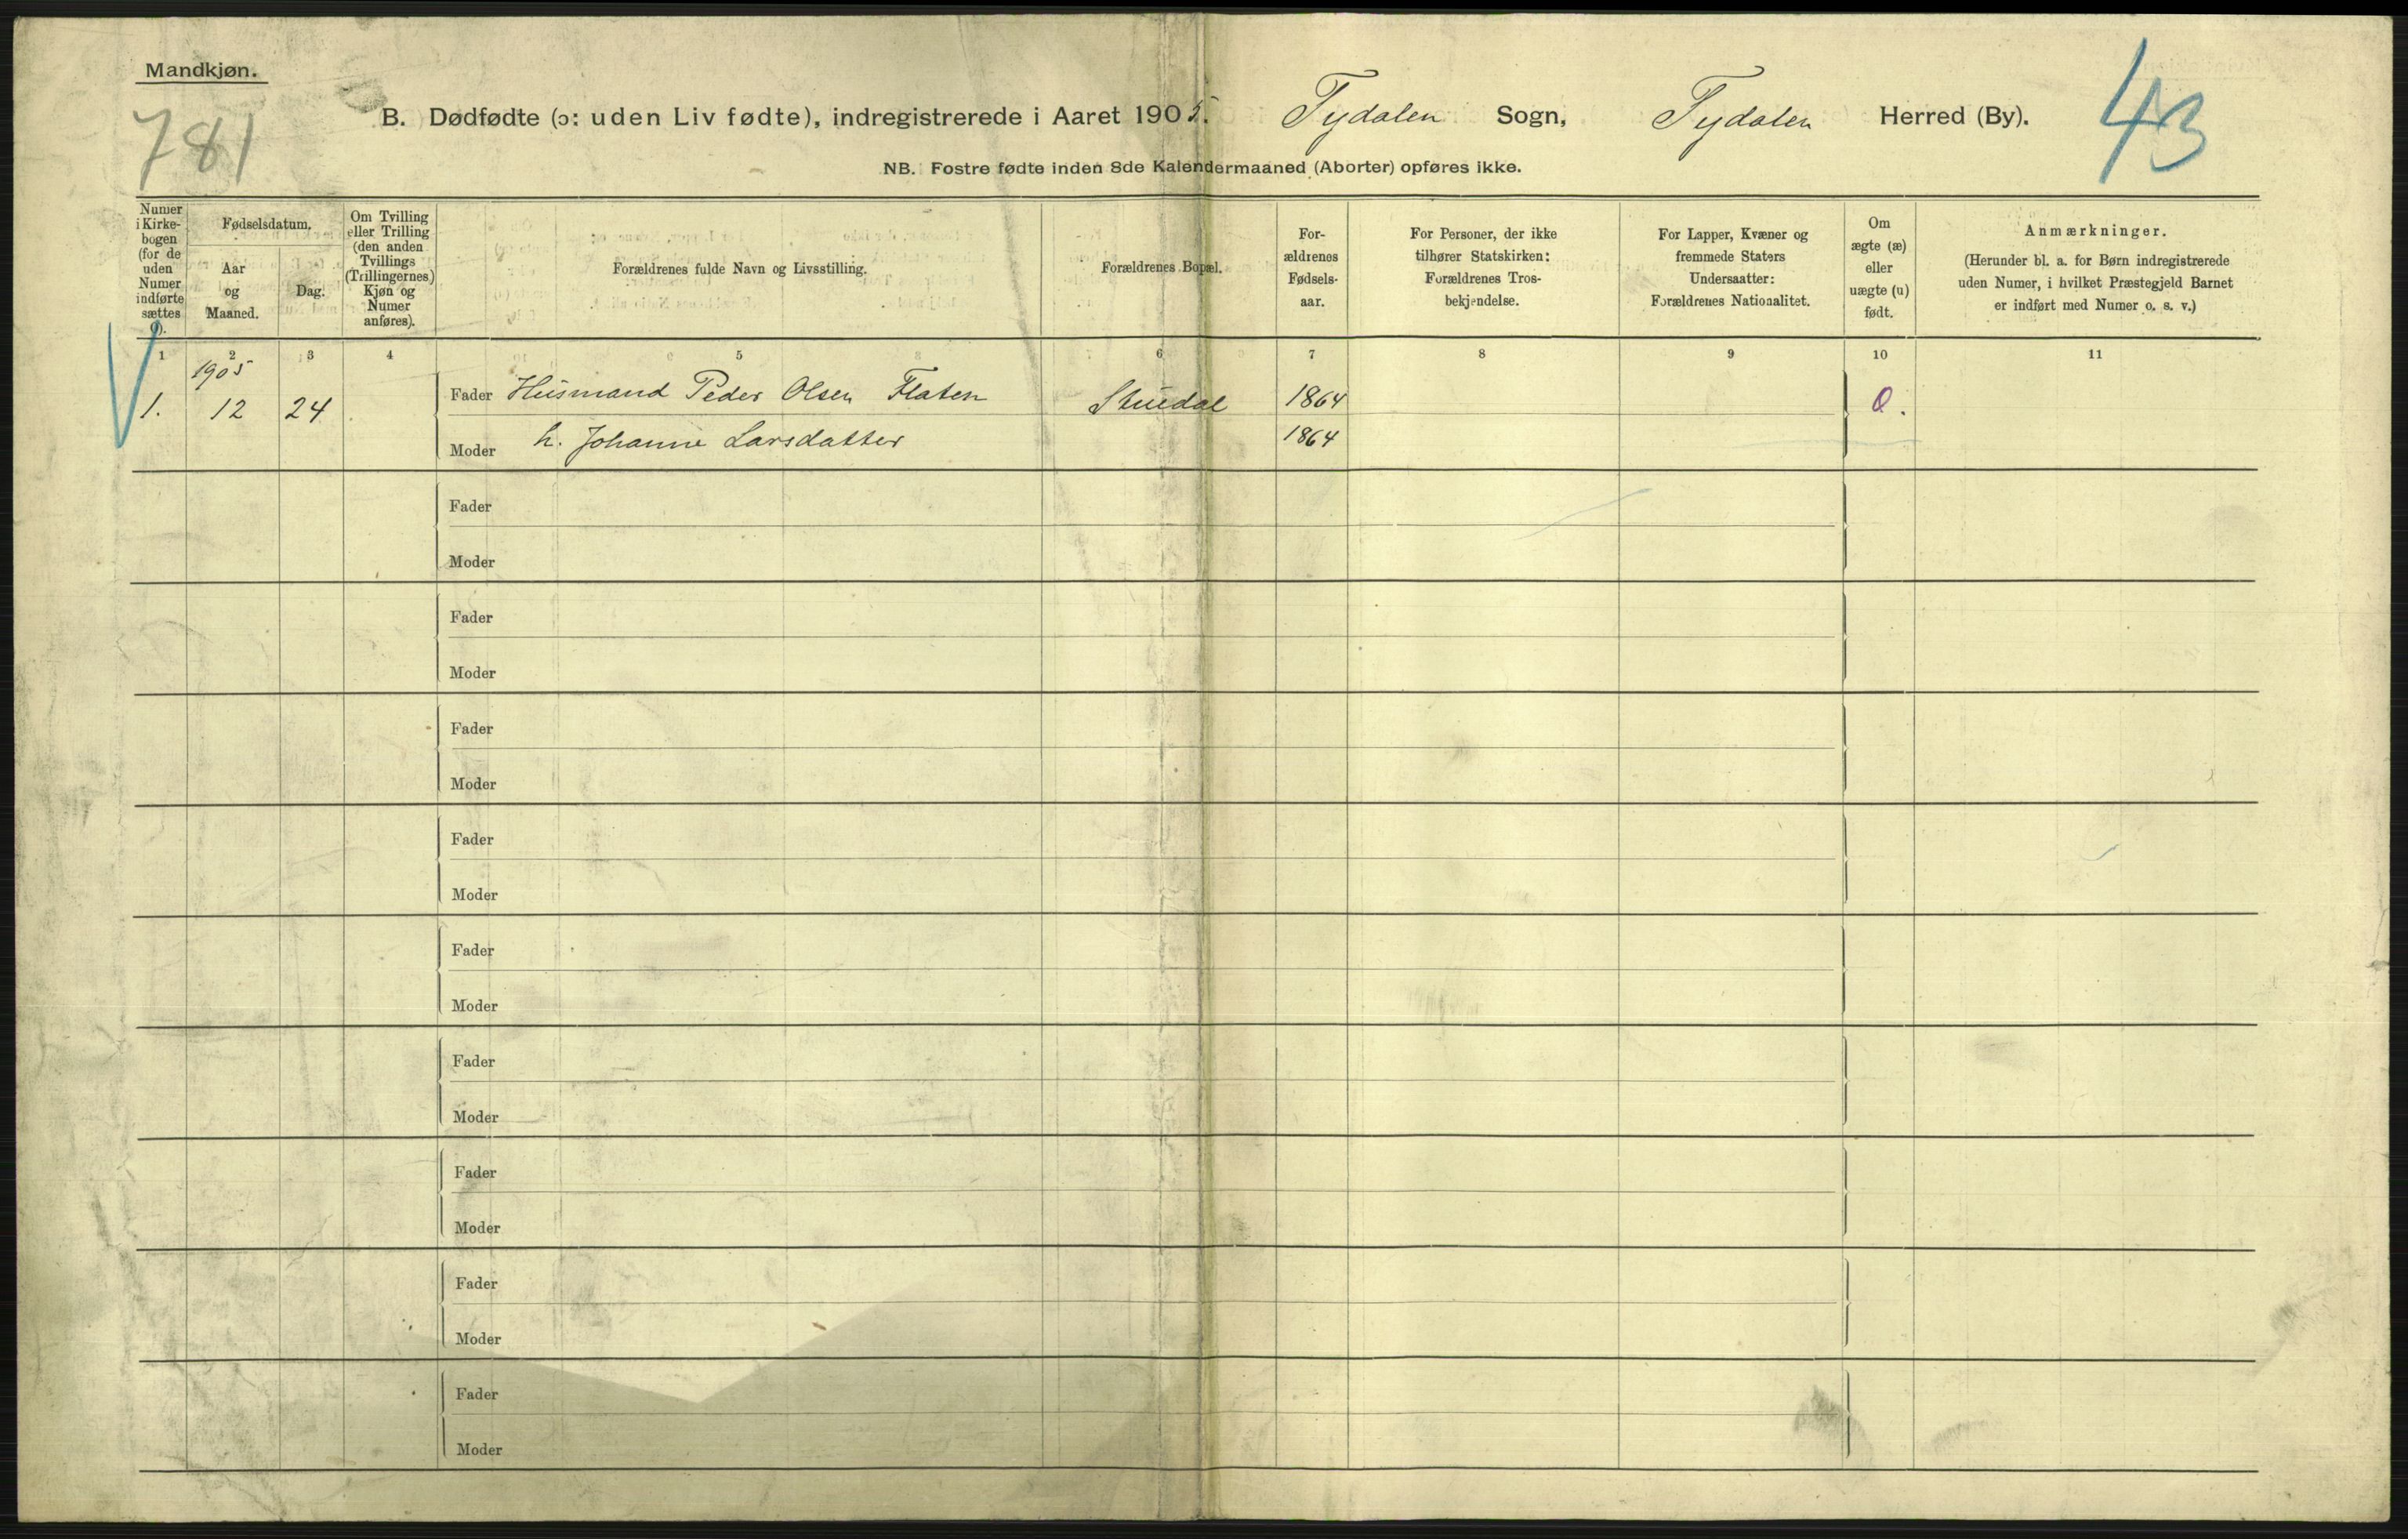 Mandkjøn.
781
43
B. Dødfødte (ɔ: uden Liv fødte), indregistrerede i Aaret 1905. Tydalen Sogn, Tydalen Herred (By).
NB. Fostre fødte inden 8de Kalendermaaned (Aborter) opføres ikke.
Numer i Kirke-bogen (for de uden Numer indførte sættes 0).
Fødselsdatum.
Aar og Maaned.
Dag.
Om Tvilling eller Trilling (den anden Tvillings (Trillingernes) Kjøn og Numer anføres).
Forældrenes fulde Navn og Livsstilling.
Forældrenes Bopæl.
For-ældrenes Fødsels-aar.
For Personer, der ikke tilhører Statskirken: Forældrenes Tros-bekjendelse.
For Lapper, Kvæner og fremmede Staters Undersaatter: Forældrenes Nationalitet.
Om ægte (æ) eller uægte (u) født.
Anmærkninger.
(Herunder bl. a. for Børn indregistrerede uden Numer, i hvilket Præstegjeld Barnet er indført med Numer o. s. v.)
1 2 3 4 5 6 7 8 9 10 11
1905
1. 12 24 Fader Husmand Peder Olsen Flaten Stuedal 1864
Moder h. Johanne Larsdatter 1864
Fader
Moder
Fader
Moder
Fader
Moder
Fader
Moder
Fader
Moder
Fader
Moder
Fader
Moder
Fader
Moder
Fader
Moder